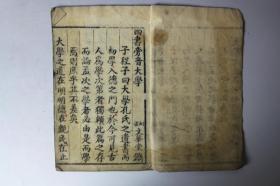 四書旁音大學
子程子曰大學孔氏之遺書而
初學入德之門也於今可見古
人爲學次第者獨賴此篇之存
而論孟次之學者必由是而學
焉則庶乎其不差矣
大學之道在明明德在親民在止